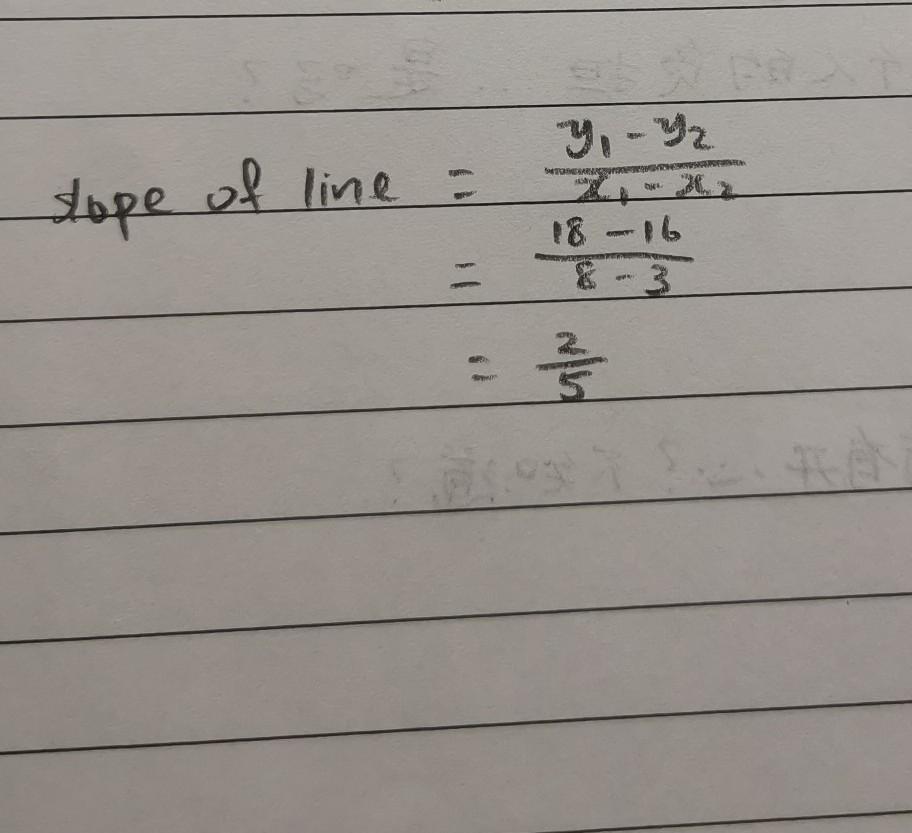 slope of line = y₁ - y₂ / x₁ - x₂
= 18 - 16 / 8 - 3
= 2/5